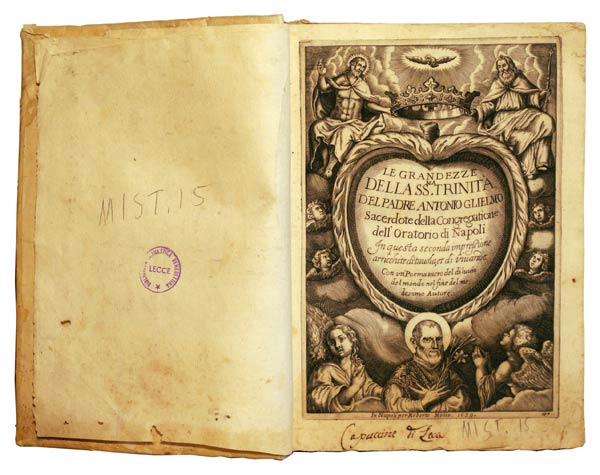 MIST. 15
LECCE
LE GRANDEZZE
DELLA SS.MA TRINITA
DEL PADRE ANTONIO GLIELMO
Sacerdote della Congregatione
dell' Oratorio di Napoli
In questa seconda impressione
arricchita di tauola, et di
Con un Poema sacro del diluuio
del mondo nel fine del me
desimo Autore.
In Napoli per Roberto Mollo. 16
Capuccine di
MIST. 15